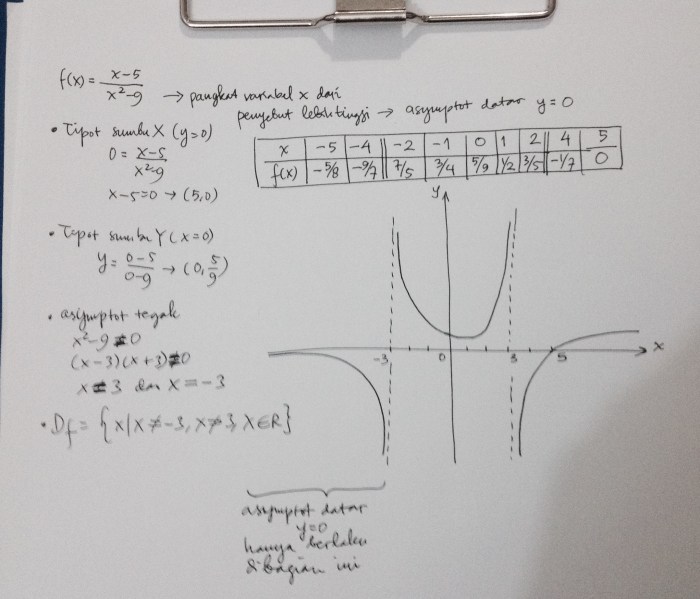 f(x) = x-5 / x²-9 → pangkat variabel x dari
penyebut lebih tinggi → asymptot datar y=0
• Tipot sumbu X (y=0)
0 = x-5 / x²-9
x-5=0 → (5,0)
x | -5 | -4 || -2 | -1 | 0 | 1 | 2 || 4 | 5
f(x) | -5/8 | -9/7 || 7/5 | 3/4 | 5/9 | 1/2 | 3/5 || -1/7 | 0
• Tipot sumbu Y (x=0)
y = 0-5 / 0-9 → (0, 5/9)
• asymptot tegak
x²-9 = 0
(x-3)(x+3) = 0
x = 3 dan x = -3
• Df = {x | x ≠ -3, x ≠ 3, x ∈ R}
y
-3 0 3 5 x
asymptot datar
y=0
hanya berlaku
di bagian ini